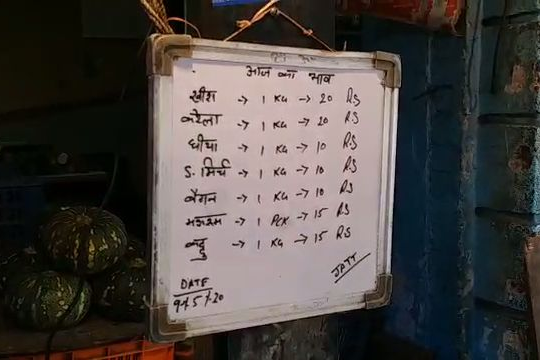 आज का भाव
खीरा → 1 KG → 20 RS
करेला → 1 KG → 20 RS
घीया → 1 KG → 10 RS
S. मिर्च → 1 KG → 10 RS
बैंगन → 1 KG → 10 RS
मशरूम → 1 PCK → 15 RS
कद्दू → 1 KG → 15 RS
DATE
9/5/20
JATT